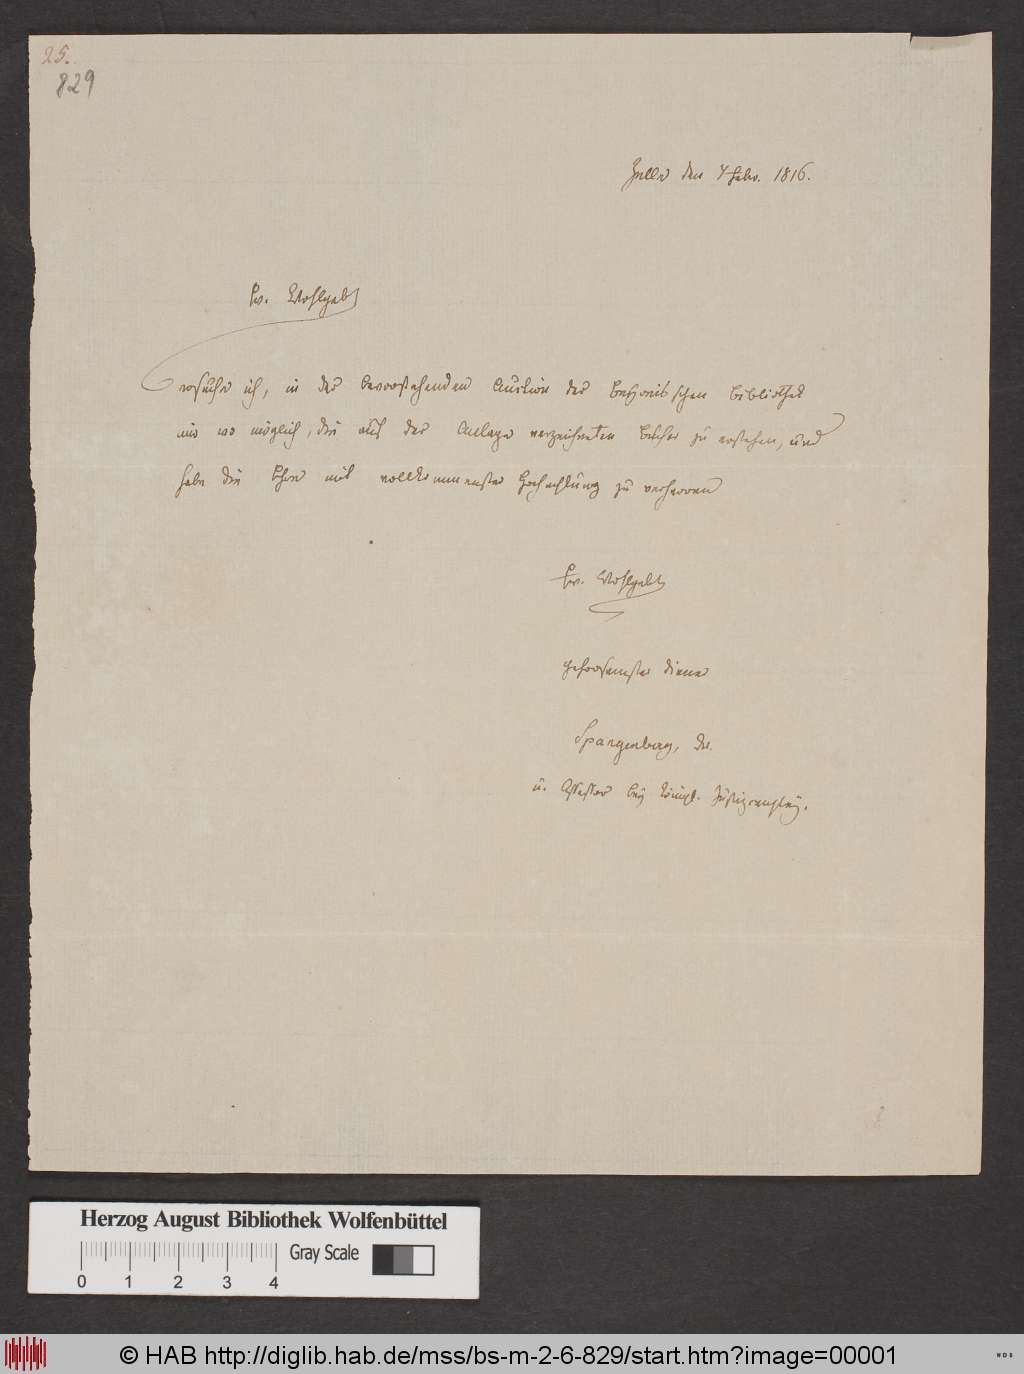 25.
829
Zelle den 4 Febr. 1816.
Ew. Wohlgeb
ersuche ich, in der bevorstehenden Auction der schen Bibliothek
mir wo möglich, die auf der Anlage verzeichneten Bücher zu erstehen, und
habe die Ehre mit vollkommenster Hochachtung zu verharren
Ew. Wohlgeb
gehorsamster Diener
Spangenberg, Dr.
u. Assessor bey Königl. Justizcanzley.
Herzog August Bibliothek Wolfenbüttel
Gray Scale
0 1 2 3 4
© HAB http://diglib.hab.de/mss/bs-m-2-6-829/start.htm?image=00001